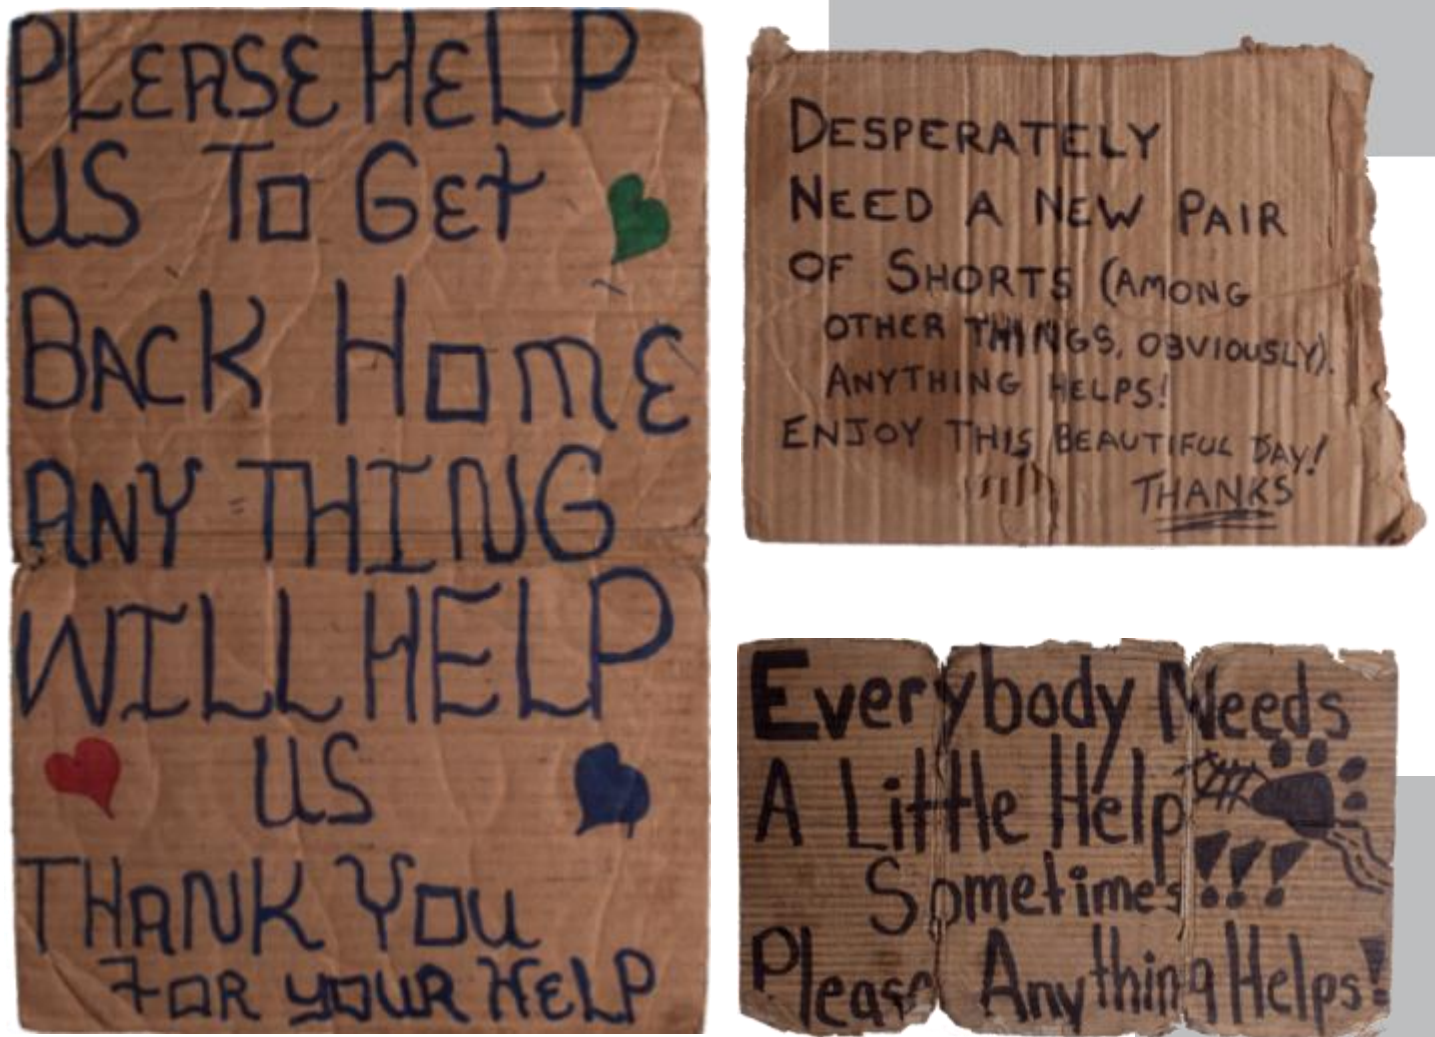 PLEASE HELP
US TO GET
BACK HOME
ANY THING
WILL HELP
US
THANK YOU
FOR YOUR HELP
DESPERATELY
NEED A NEW PAIR
OF SHORTS (AMONG
OTHER THINGS, OBVIOUSLY).
ANYTHING HELPS!
ENJOY THIS BEAUTIFUL DAY!
THANKS
Everybody Needs
A Little Help
Sometimes !!!
Please Anything Helps!